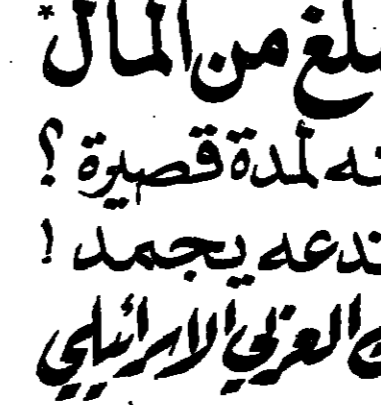 من المال*
لمدة قصيرة ؟
يجمد !
العربي الاسرائيلي